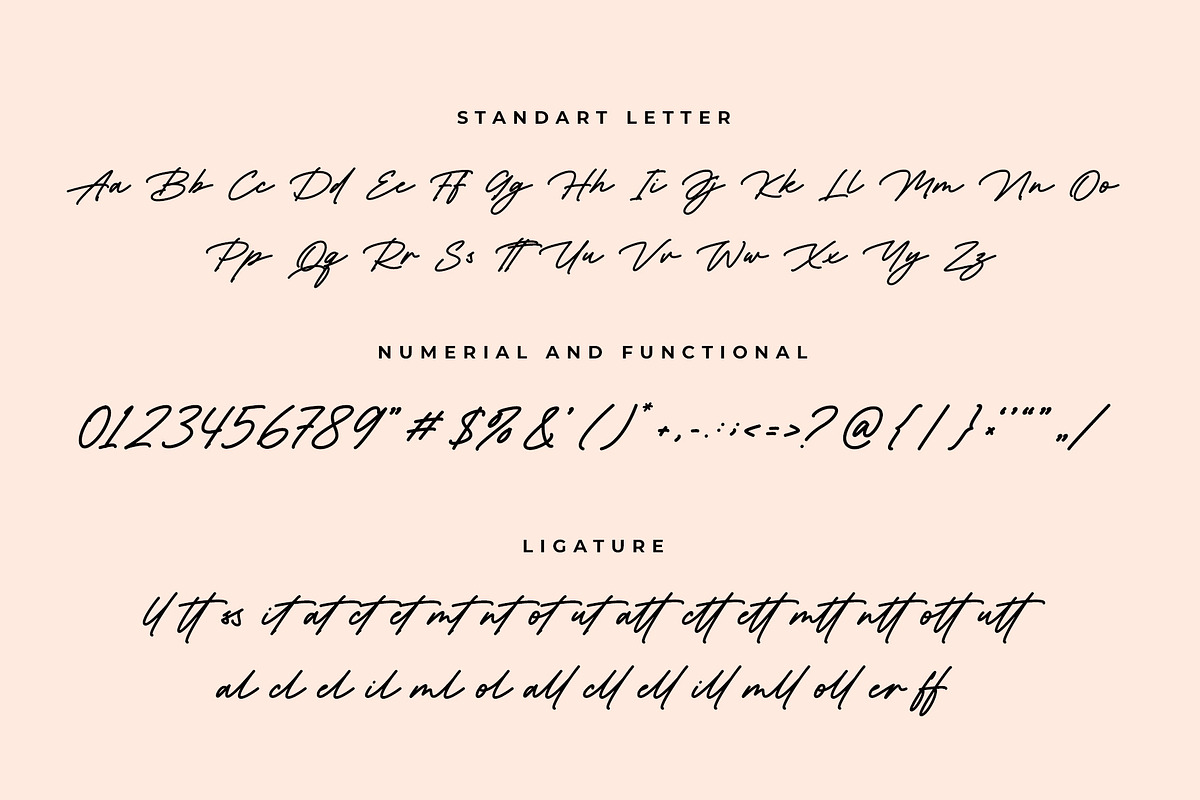 STANDART LETTER
Aa Bb Cc Dd Ee Ff Gg Hh Ii Jj Kk Ll Mm Nn Oo
Pp Qq Rr Ss Tt Uu Vv Ww Xx Yy Zz
NUMERIAL AND FUNCTIONAL
0123456789" # $% &' ( ) * + , - . : ; < = > ? @ { | } × ‘ ’ “ ” „ /
LIGATURE
ll tt ss it at ct et mt nt ot ut att ctt ett mtt ntt ott utt
al cl el il ml ol all cll ell ill mll oll er ff